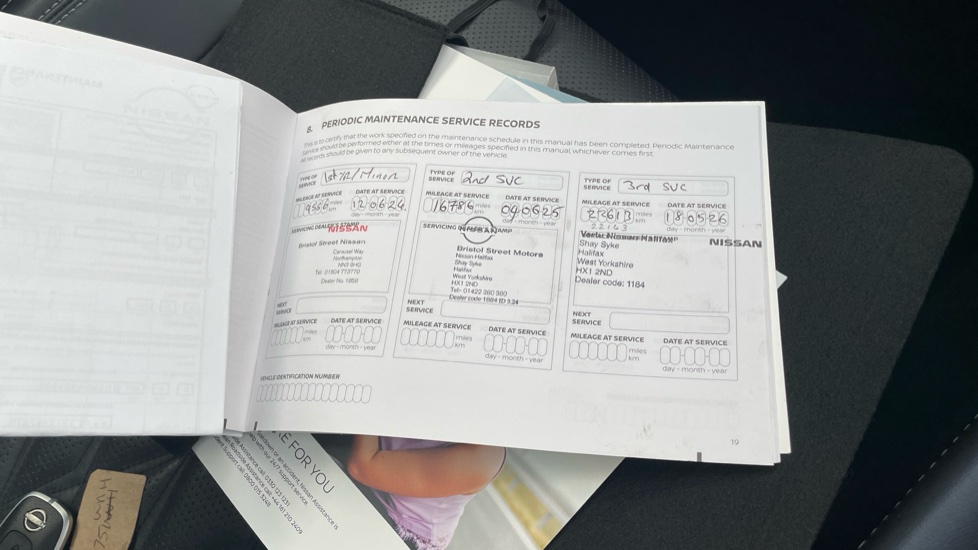 8. PERIODIC MAINTENANCE SERVICE RECORDS
This is to certify that the work specified on the maintenance schedule in this manual has been completed. Periodic Maintenance
Service should be performed either at the times or mileages specified in this manual, whichever comes first.
All records should be given to any subsequent owner of the vehicle.
TYPE OF SERVICE 1st /Minor
MILEAGE AT SERVICE DATE AT SERVICE
miles km 120624
day - month - year
SERVICING DEALER'S STAMP
NISSAN
Bristol Street Nissan
Carousel Way
Northampton
Dealer No. 1858
NEXT SERVICE
MILEAGE AT SERVICE DATE AT SERVICE
miles km
day - month - year
VEHICLE IDENTIFICATION NUMBER
TYPE OF SERVICE 2nd SVC
MILEAGE AT SERVICE DATE AT SERVICE
16786 km 040625
day - month - year
SERVICING
NISSAN
Bristol Street Motors
Nissan Halifax
Shay Syke
Halifax
West Yorkshire
HX1 2ND
Tel:- 01422 380 980
Dealer code 1884
NEXT SERVICE
MILEAGE AT SERVICE DATE AT SERVICE
miles km
day - month - year
TYPE OF SERVICE 3rd SVC
MILEAGE AT SERVICE DATE AT SERVICE
22613 miles km 180526
22163
day - month - year
Vertu Nissan Halifax NISSAN
Shay Syke
Halifax
West Yorkshire
HX1 2ND
Dealer code: 1184
NEXT SERVICE
MILEAGE AT SERVICE DATE AT SERVICE
miles km
day - month - year
19
RE FOR YOU